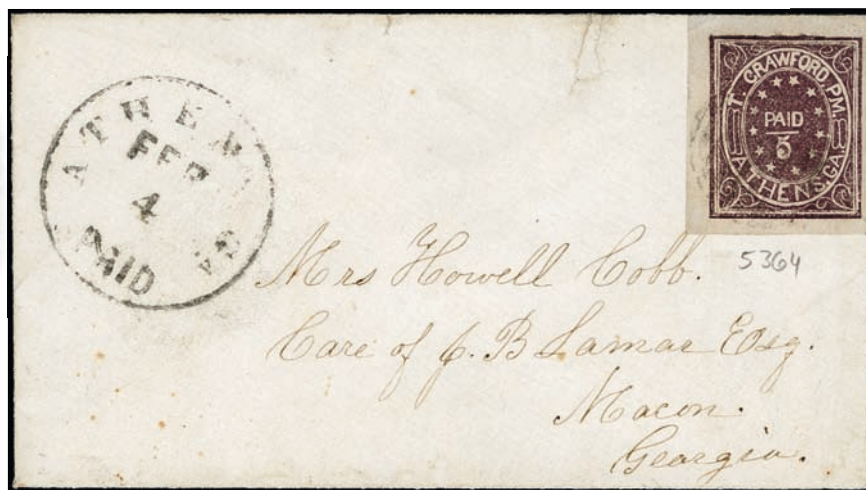 ATHENS GA
FEB
4
PAID
T. CRAWFORD, P.M.
PAID
5
ATHENS, GA.
5364
Mrs Howell Cobb.
Care of J. B Lamar Esq.
Macon.
Georgia.